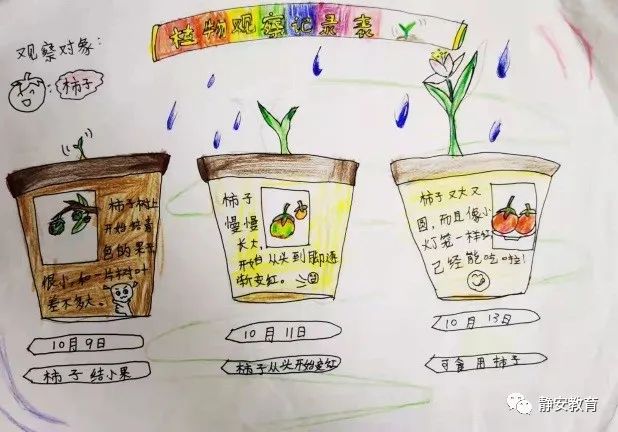 植物观察记录表
观察对象:
:柿子
柿子树上
开始结着
色的果子
很小和一片树叶
差不多大。
柿子
慢慢
长大,
开始从头到脚逐
渐变红。
柿子又大又
圆,而且像小
灯笼一样红
已经能吃啦!
10月9日
10月11日
10月13日
柿子结小果
柿子从头开始变红
可食用柿子
静安教育